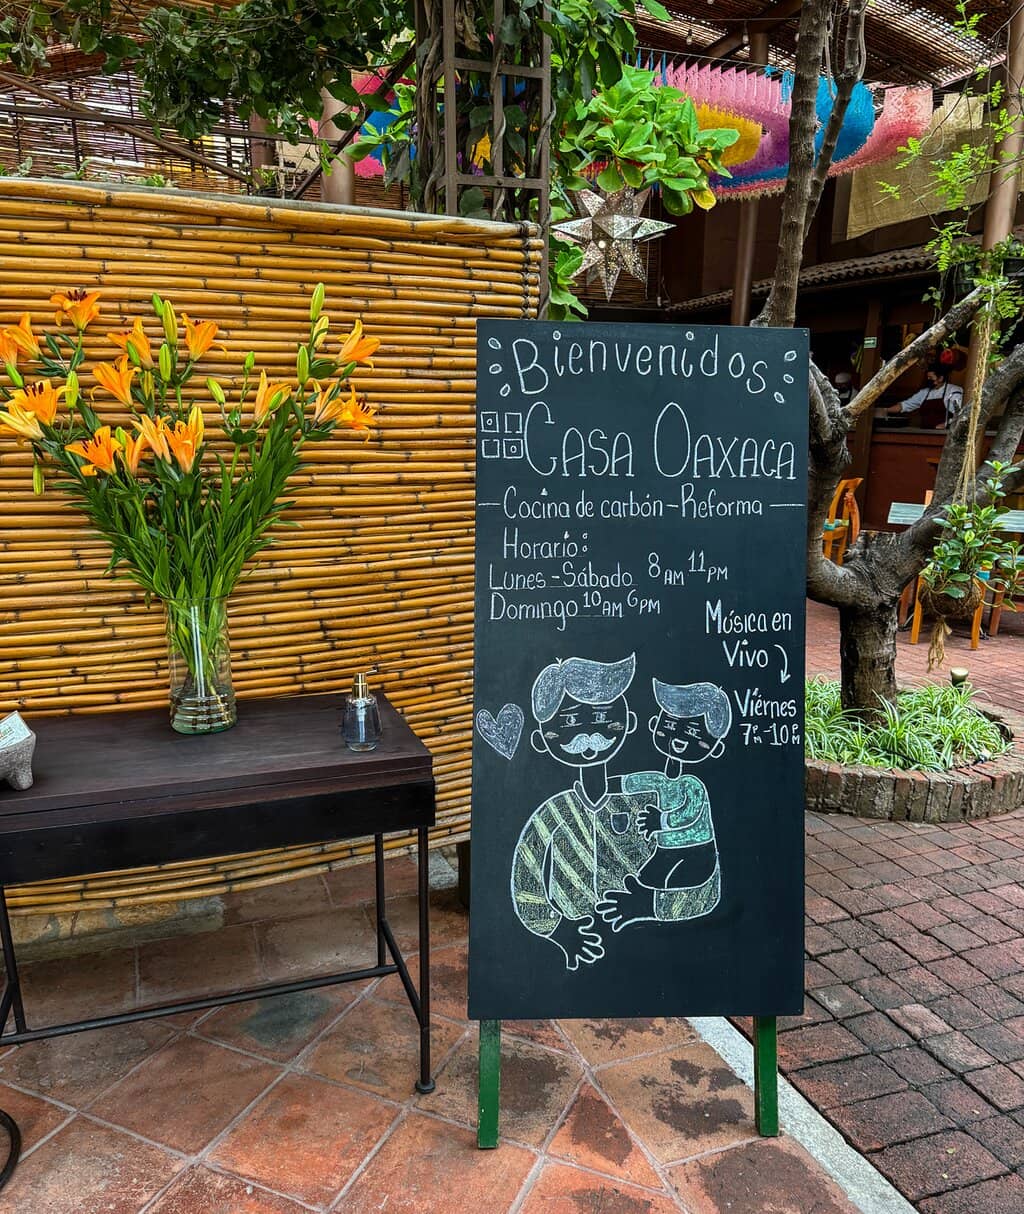 Bienvenidos
CASA OAXACA
Cocina de carbón - Reforma
Horario:
Lunes - Sábado 8 AM 11 PM
Domingo 10 AM 6 PM
Música en
Vivo
Viérnes
7 PM - 10 PM